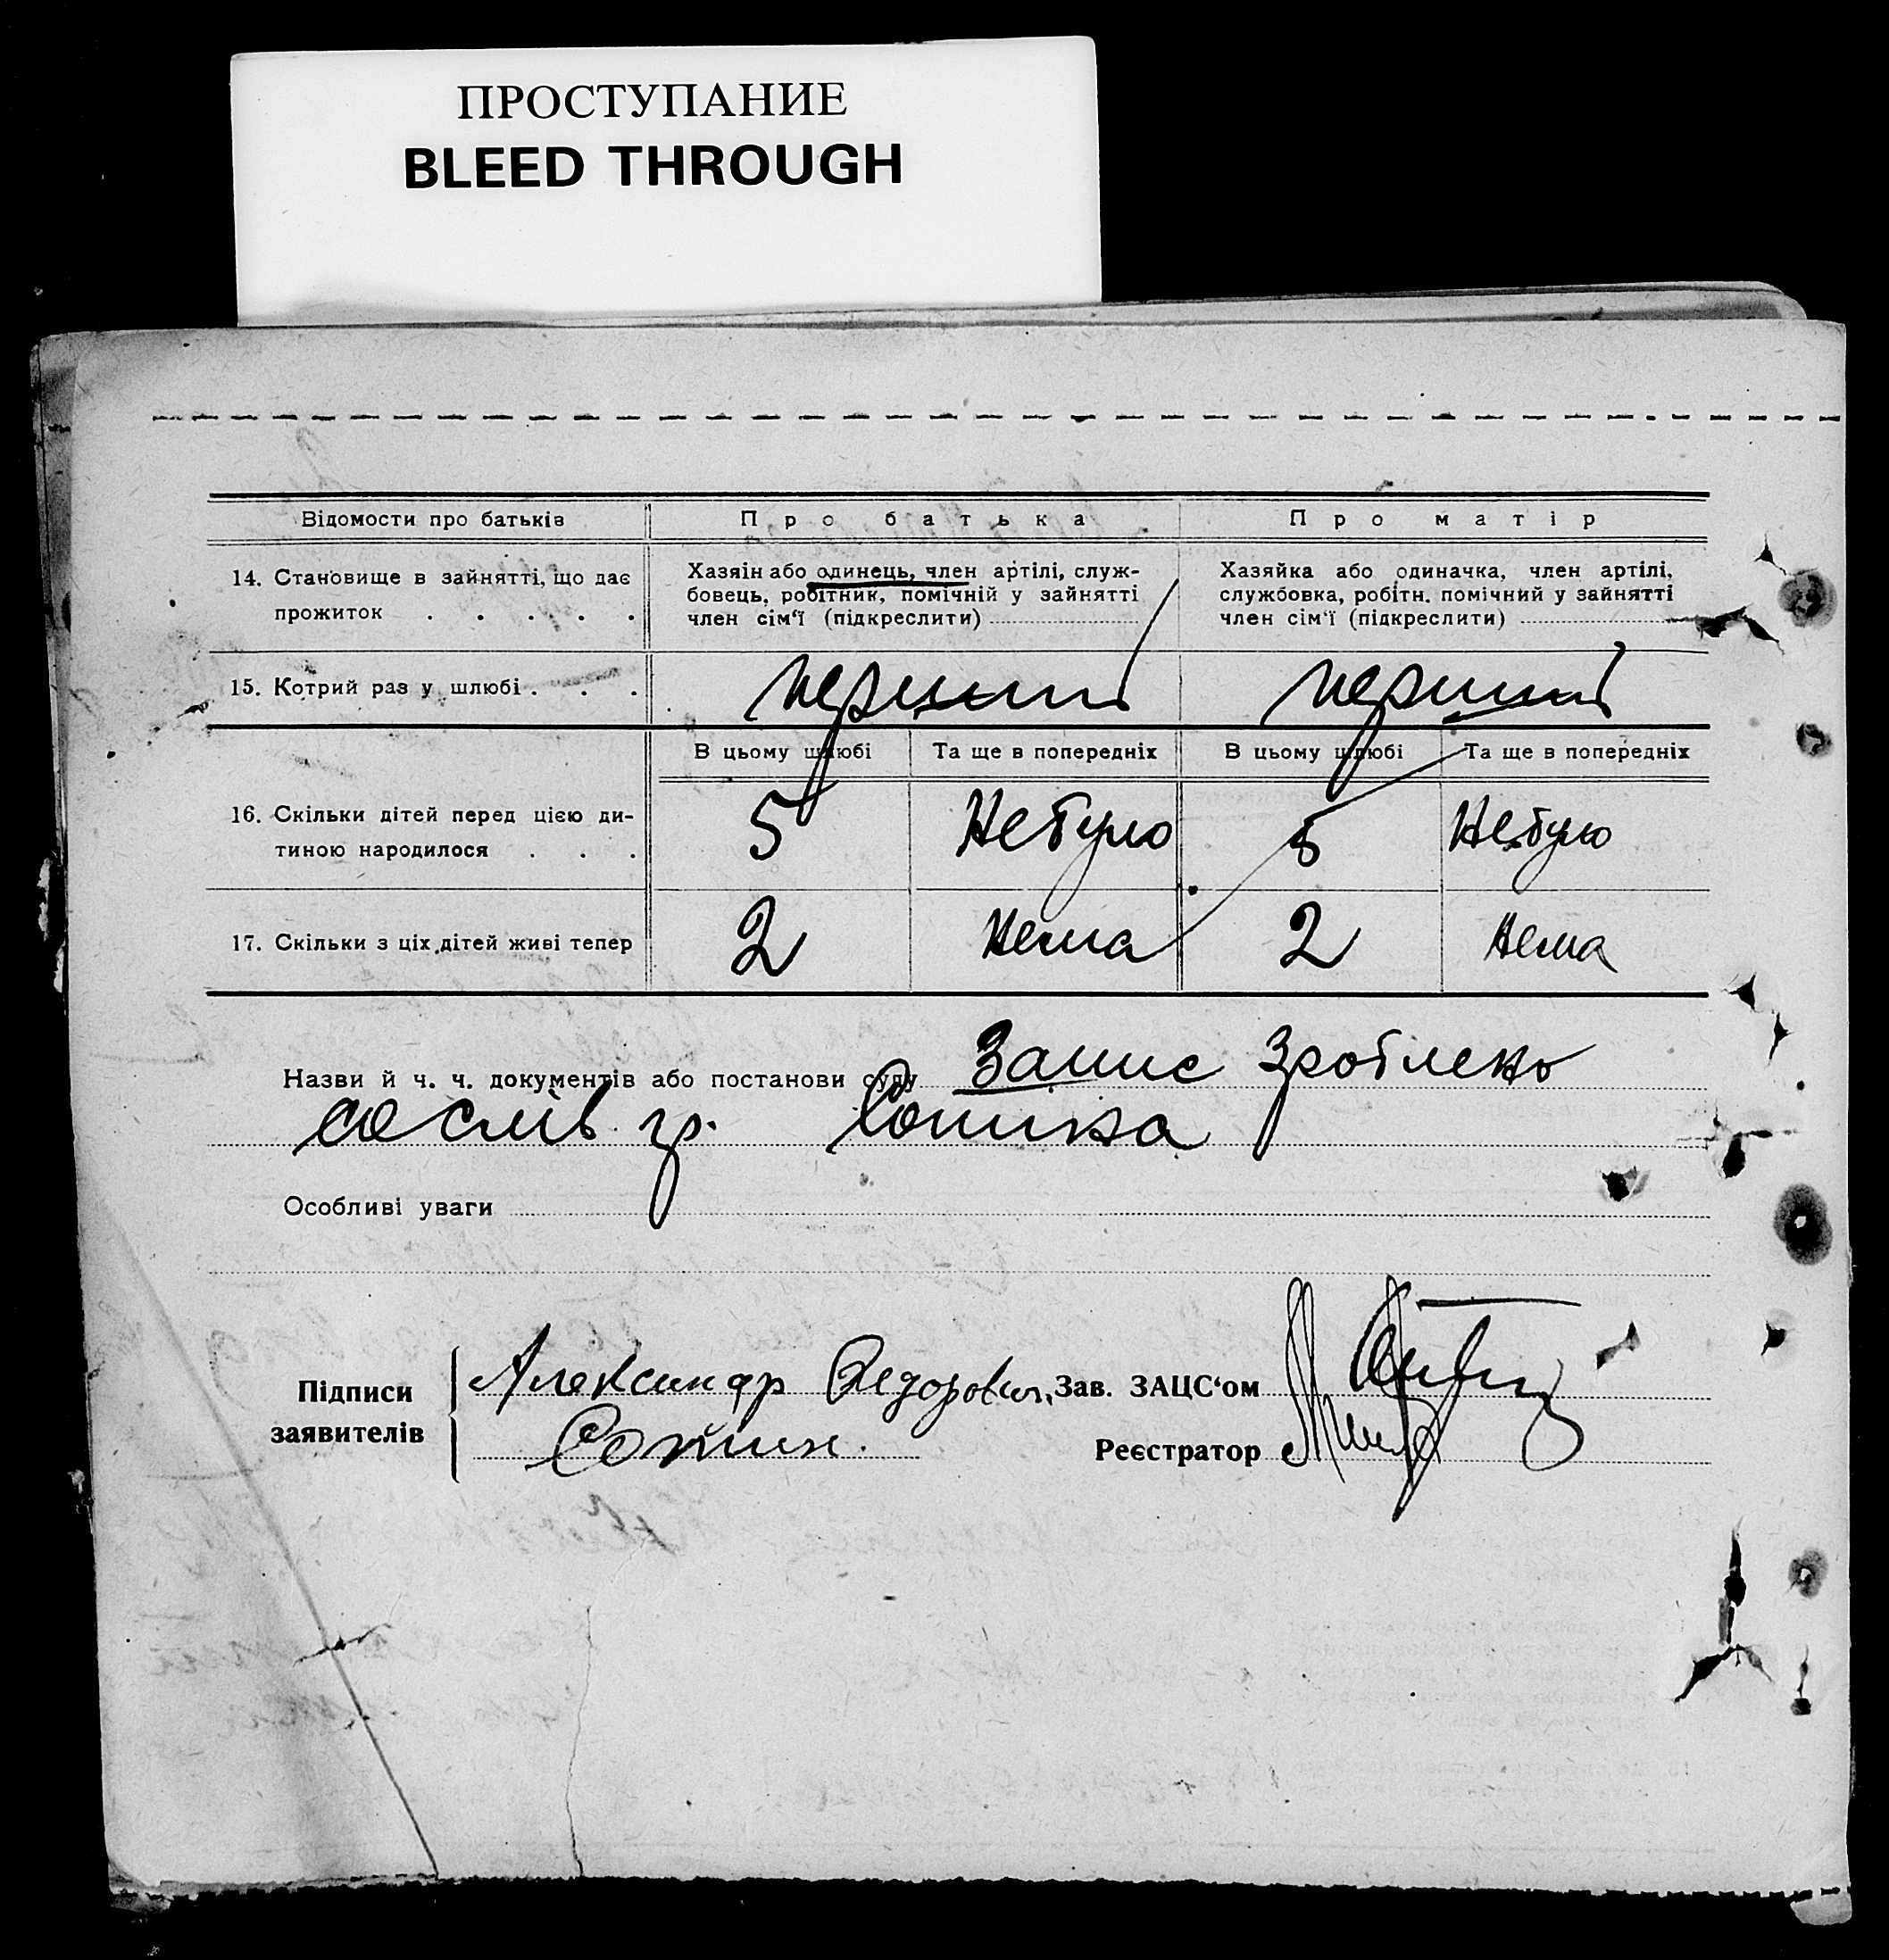 ПРОСТУПАНИЕ
BLEED THROUGH
Відомости про батьків
Про батька
Про матір
14. Становище в зайнятті, що дає
прожиток . . . . .
Хазяін або одинець, член артілі, служ-
бовець, робітник, помічній у зайнятті
член сім'ї (підкреслити)
Хазяйка або одиначка, член артілі,
службовка, робітн. помічний у зайнятті
член сім'ї (підкреслити)
15. Котрий раз у шлюбі . . .
перший
перший
В цьому шлюбі
Та ще в попередніх
В цьому шлюбі
Та ще в попередніх
16. Скільки дітей перед цією ди-
тиною народилося . . .
5
Небуло
5
Небуло
17. Скільки з ціх дітей живі тепер
2
Нема
2
Нема
Назви й ч. ч. документів або постанови суду Запис зроблено
со слів гр.
Особливі уваги
Підписи
заявителів
Александр Федорович
Зав. ЗАЦС'ом
Реєстратор